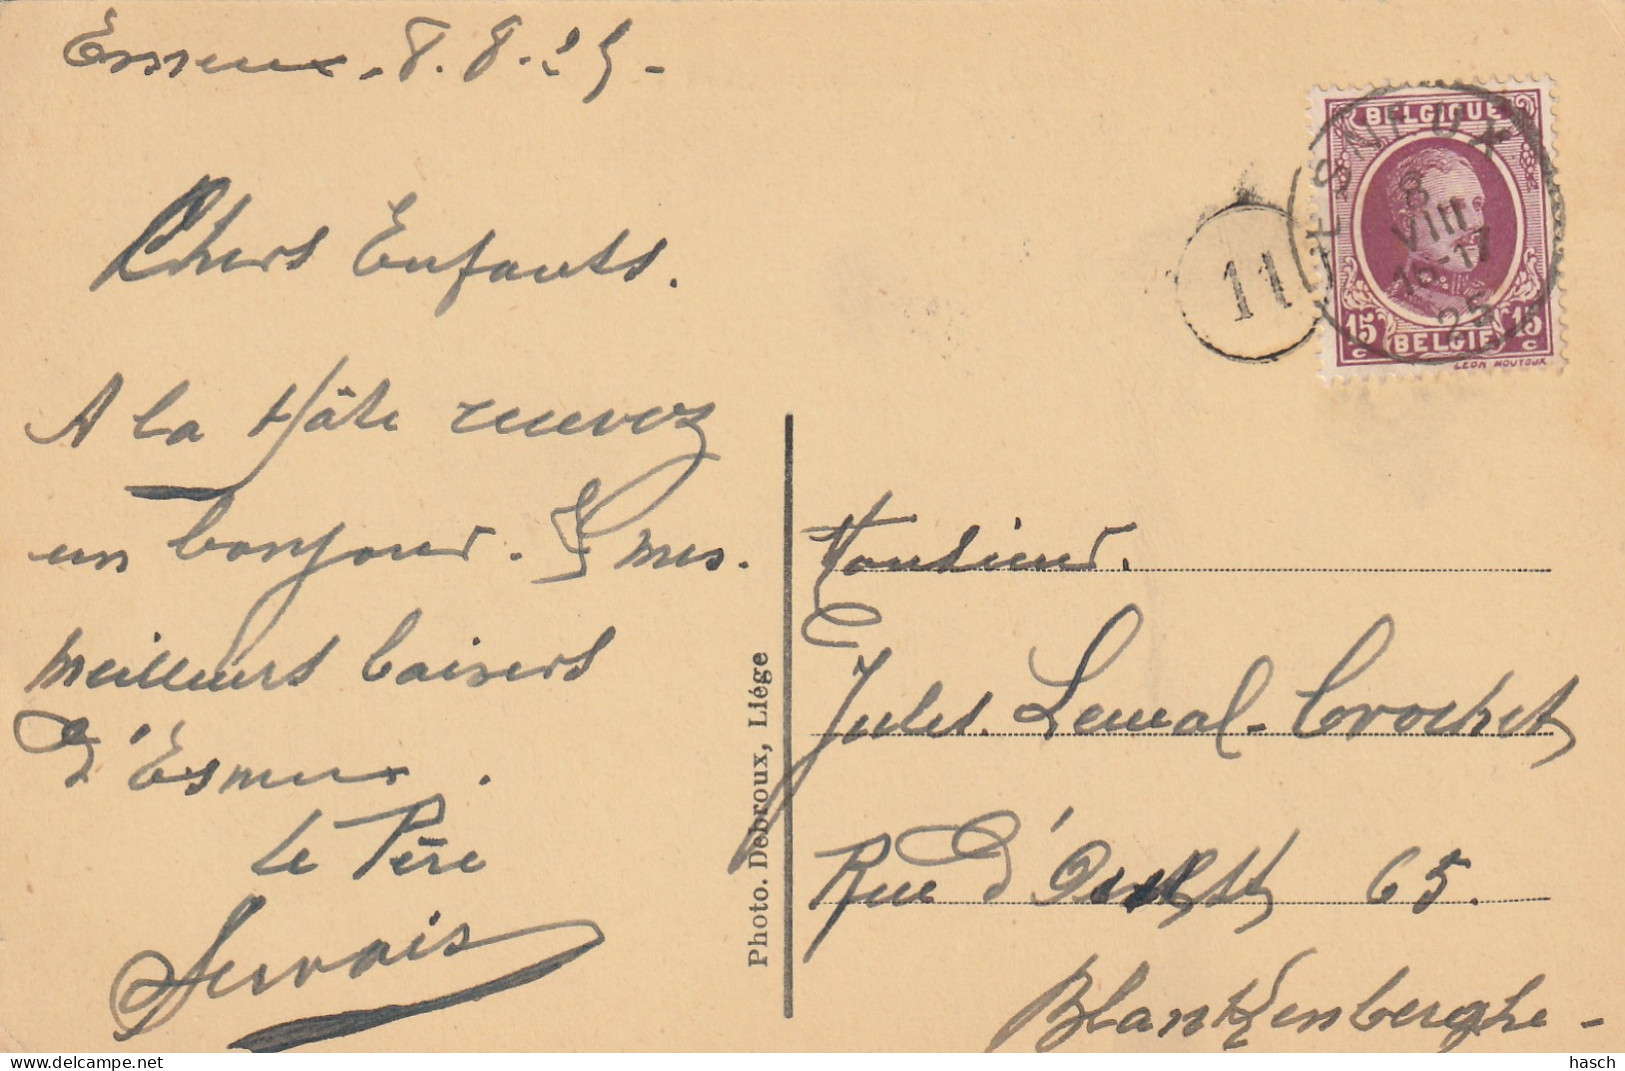 Esneux - 8.8.25 -
Chers Enfants.
A la Hâte recevez
un bonjour. & mes.
meilleurs baisers
d'Esneux.
Le Père
Servais
Photo. Debroux, Liége
BELGIQUE
ESNEUX
8
VIII
16-17
25
15 c BELGIË 15 c
LEON HOUYOUX
11
Monsieur.
Jules. Lerval-Crochet
Rue d'Ouest 65.
Blankenberghe -
hasch